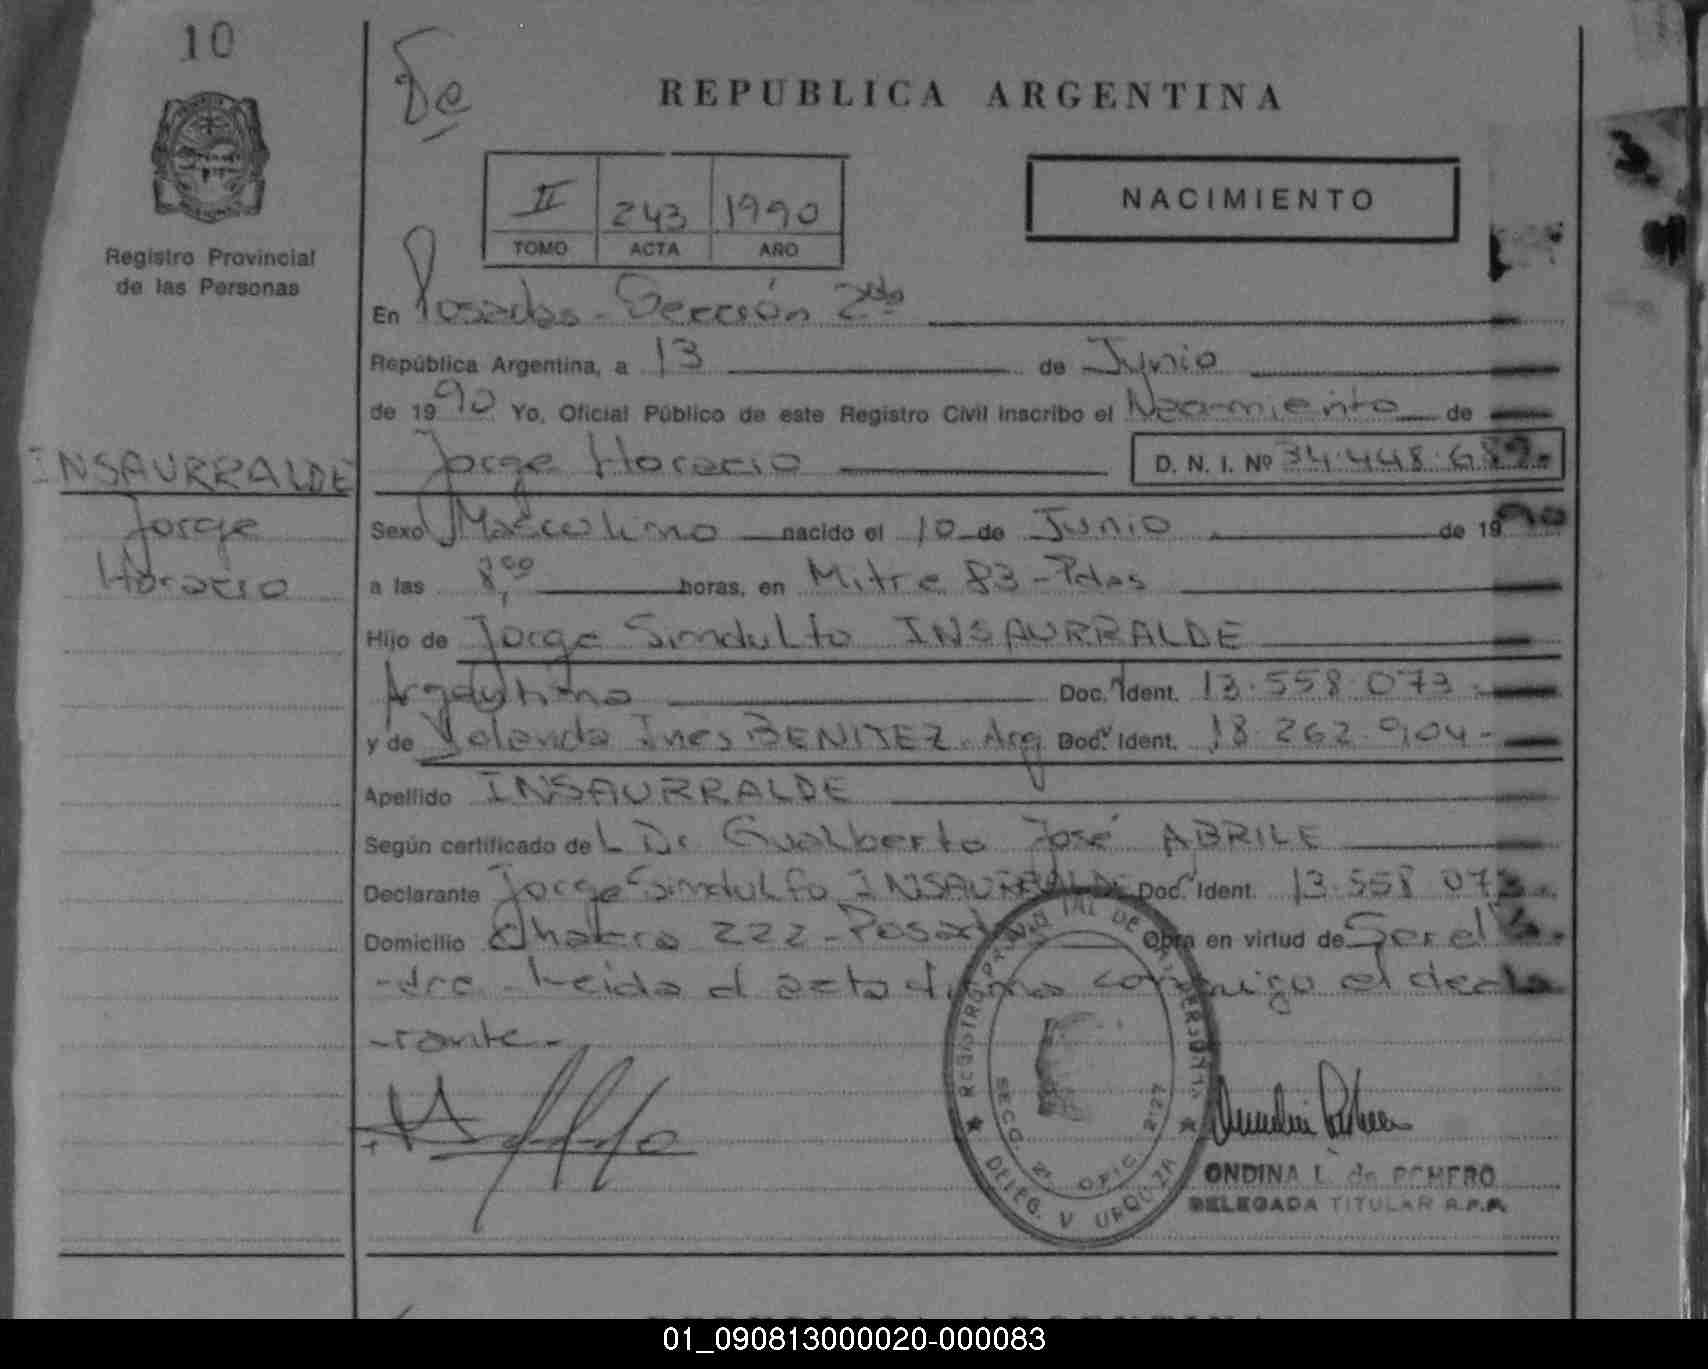 10
REPUBLICA ARGENTINA
II 243 1990
TOMO ACTA AÑO
NACIMIENTO
Registro Provincial
de las Personas
En Posadas - Sección 2da
República Argentina, a 13 de Junio
de 1990 Yo, Oficial Público de este Registro Civil inscribo el Nacimiento de
INSAURRALDE
Jorge
Horacio
Jorge Horacio D. N. I. Nº 34.448.689.
Sexo Masculino nacido el 10 de Junio de 1990
a las 8,00 horas, en Mitre 83 - Pdas
Hijo de Jorge Sindulfo INSAURRALDE
Argentino Doc. Ident. 13.558.073.
y de Yolanda Ines BENITEZ. Arg Doc. Ident. 18.262.904-
Apellido INSAURRALDE
Según certificado del Dr Gualberto José ABRILE
Declarante Jorge Sindulfo INSAURRALDE Doc. Ident. 13.558 073.
Domicilio Chacra 222 - Posadas Obra en virtud de Ser el
-dre - Leida el acta firma conmigo el decla
-rante-
REGISTRO PROVINCIAL DE
SECC. 2ª OFIC. 2127
DELEG. V URQUIZA
ONDINA L. de ROMERO
DELEGADA TITULAR R.P.P.
01_090813000020-000083